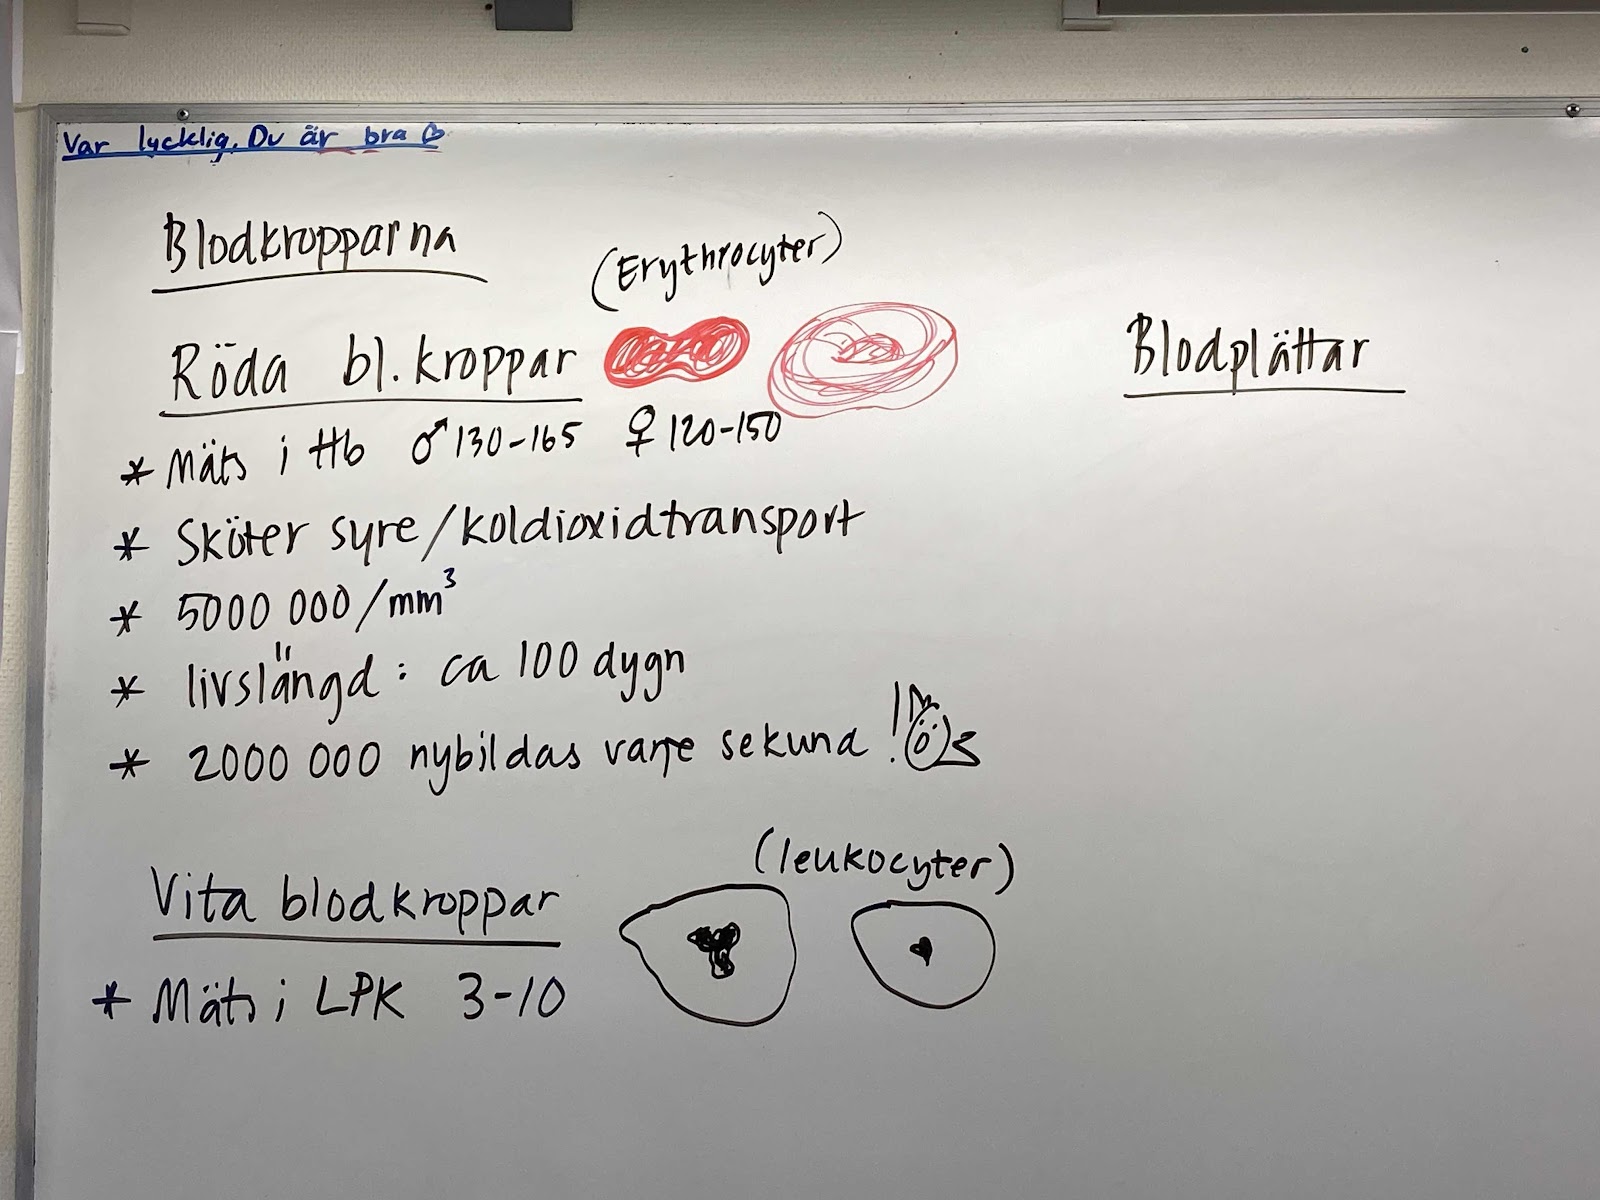 Var lycklig. Du är bra
Blodkropparna
(Erythrocyter)
Röda bl. kroppar
* Mäts i Hb ♂ 130-165 ♀ 120-150
* Sköter syre/koldioxidtransport
* 5000 000/mm³
* livslängd: ca 100 dygn
* 2000 000 nybildas varje sekund!
(leukocyter)
Vita blodkroppar
* Mäts i LPK 3-10
Blodplättar